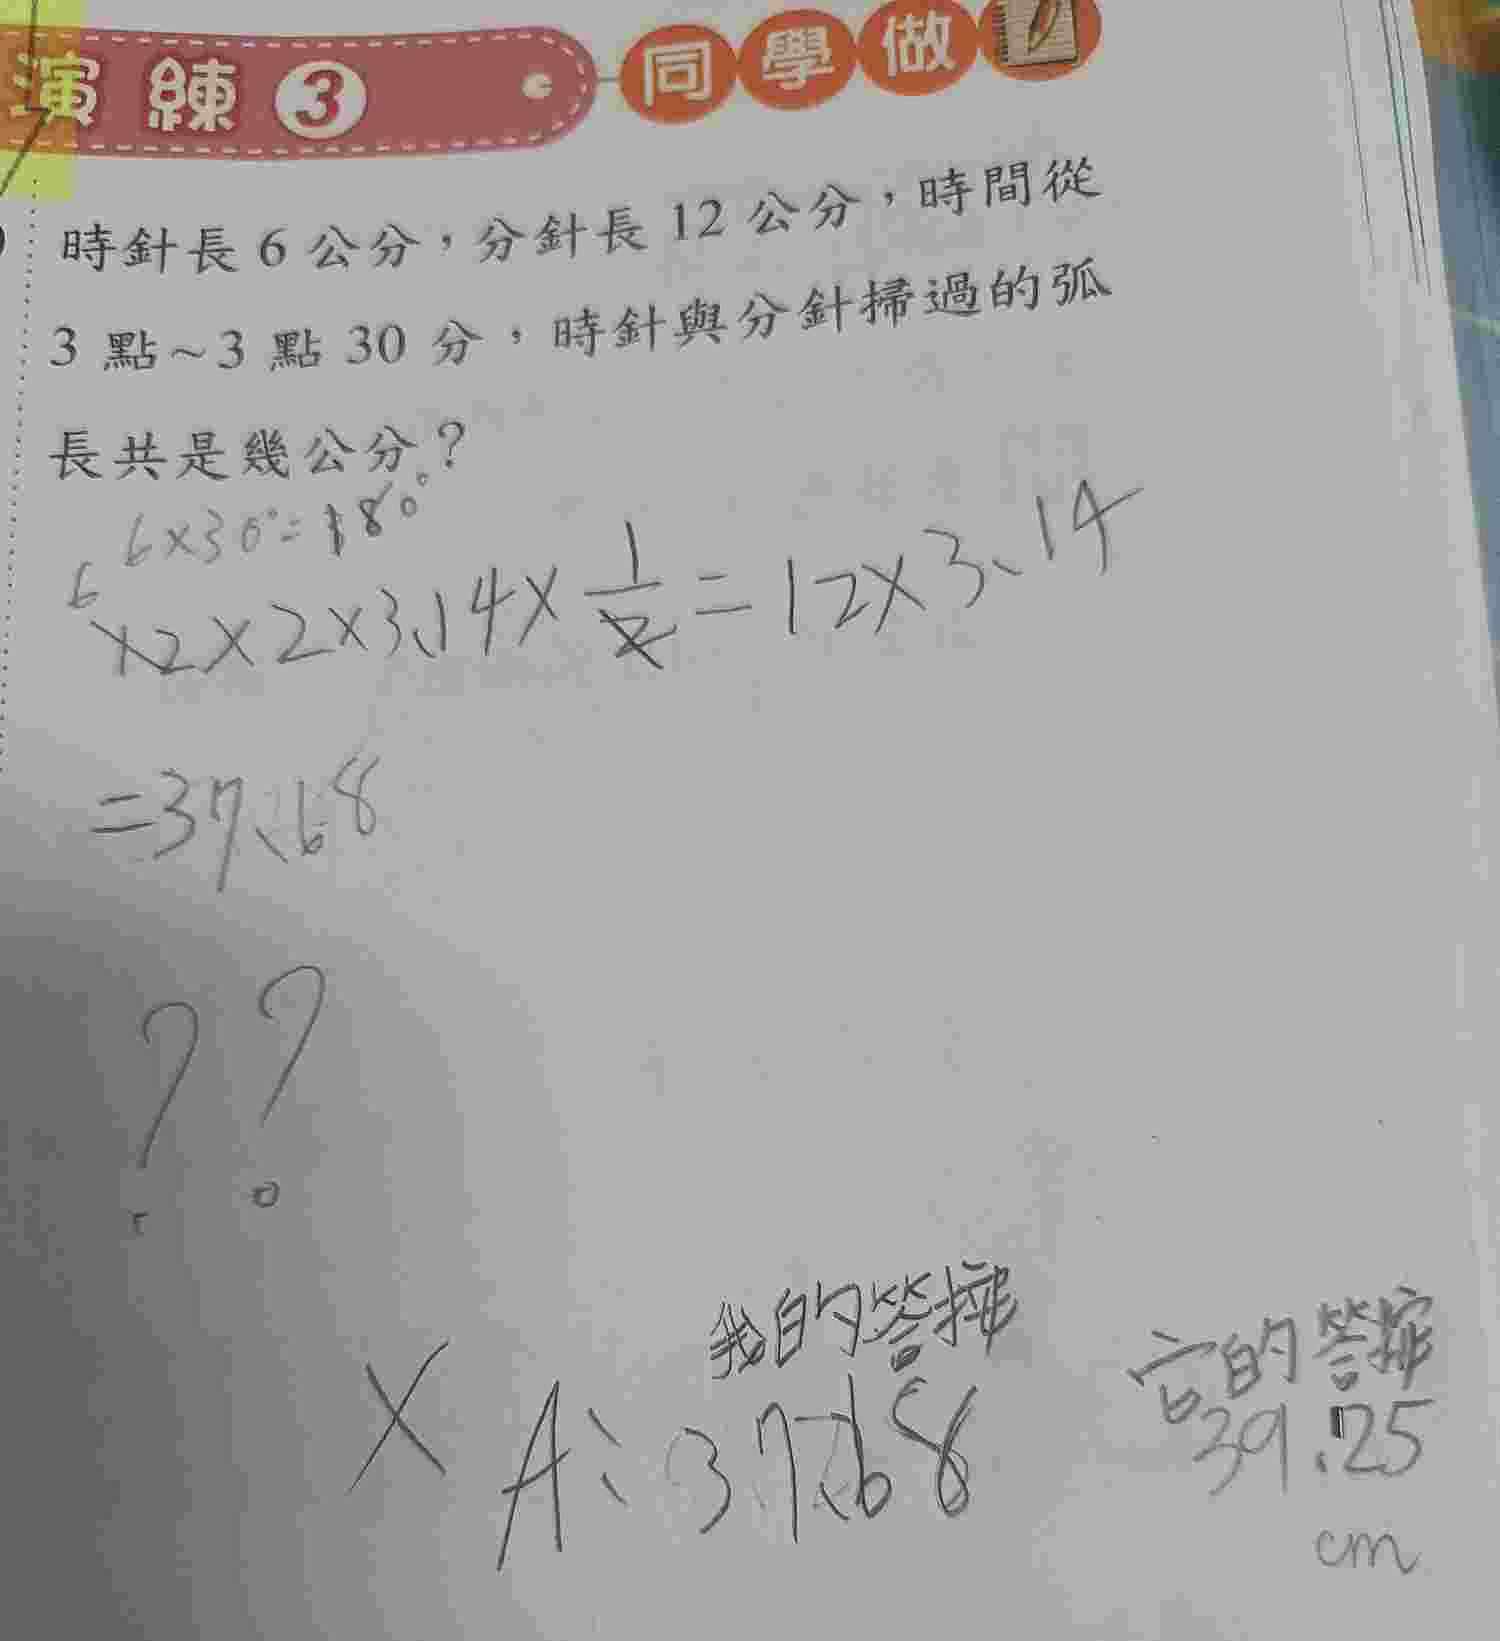 演練3 同學做
時針長 6 公分，分針長 12 公分，時間從
3 點~3 點 30 分，時針與分針掃過的弧
長共是幾公分？
6×30°=180°
6×2×2×3.14×1/2=12×3.14
=37.68
??
我的答
× A: 37.68
的答
39.25
cm